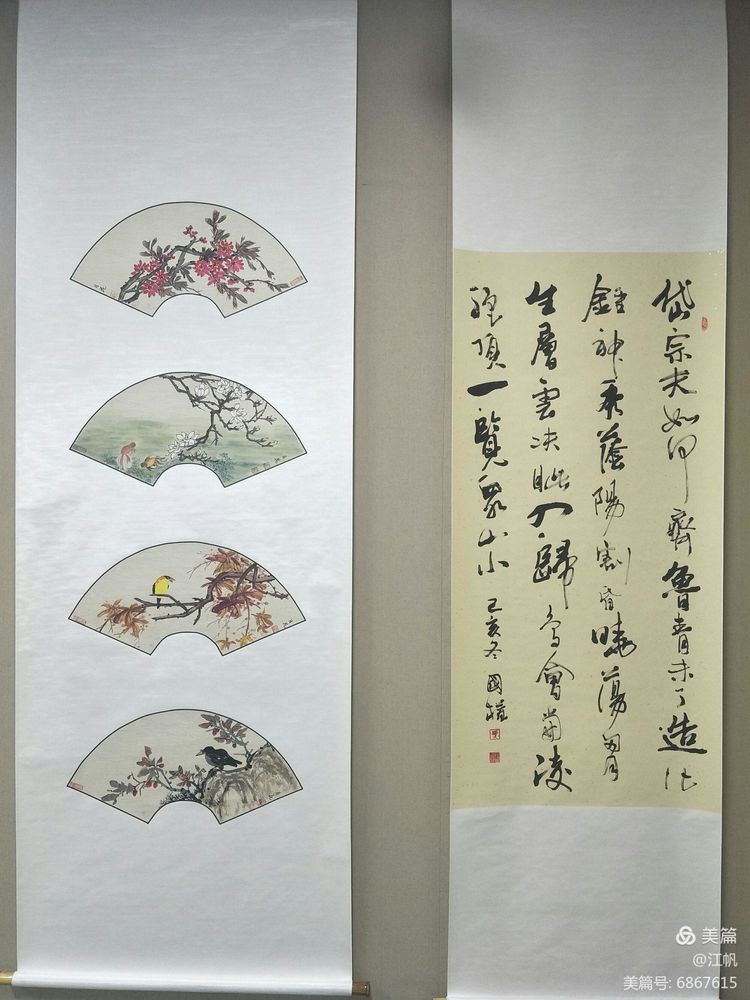 岱宗夫如何齊魯青未了造化
鍾神秀蔭陽割昏曉蕩胷
生層雲决眦入歸鳥會當凌
絕頂一覽眾山小 己亥冬 國
美篇
@江帆
美篇号: 6867615